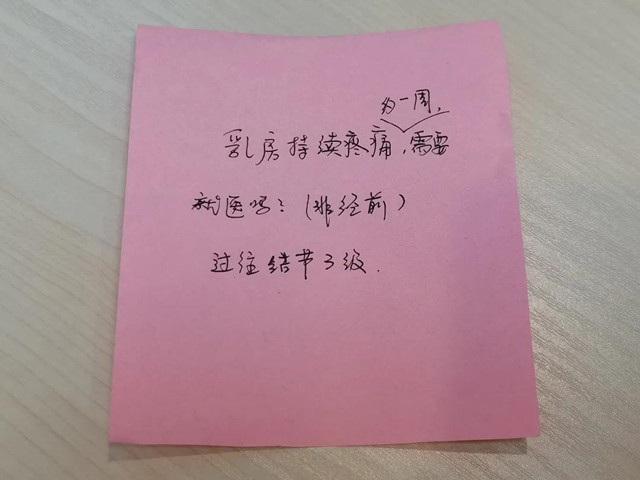 约一周,
乳房持续疼痛,需要
就医吗?(非经前)
过往结节3级.